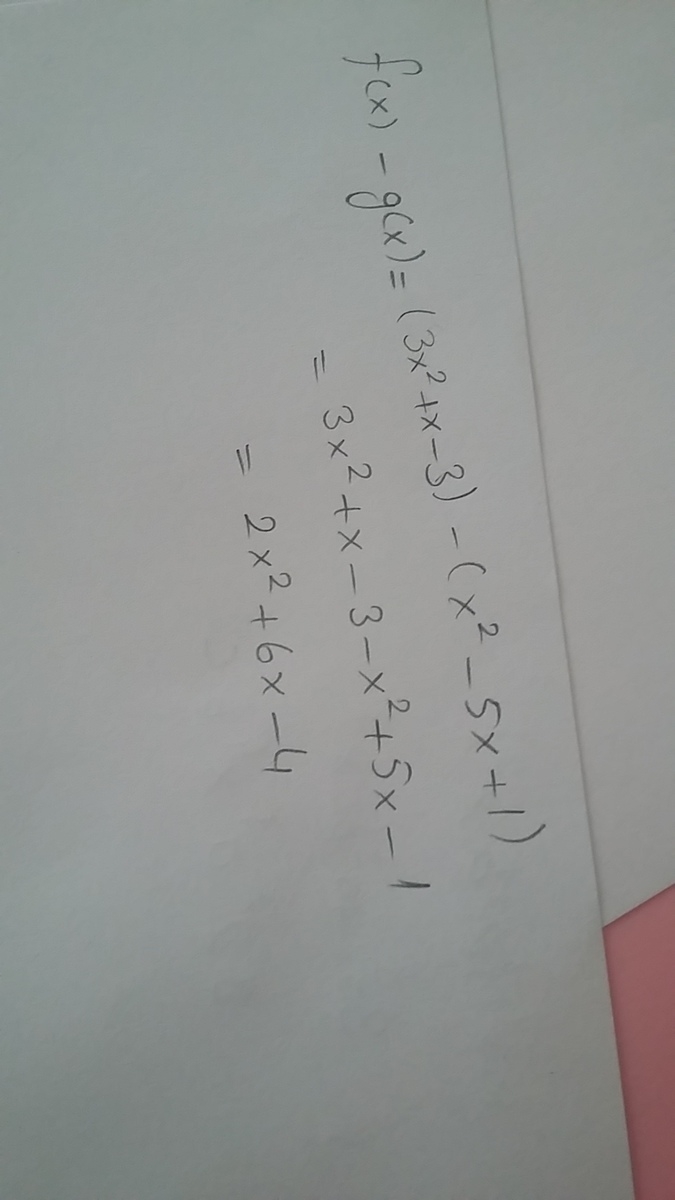 f(x) - g(x) = (3x²+x-3) - (x² - 5x + 1)
= 3x² + x - 3 - x² + 5x - 1
= 2x² + 6x - 4